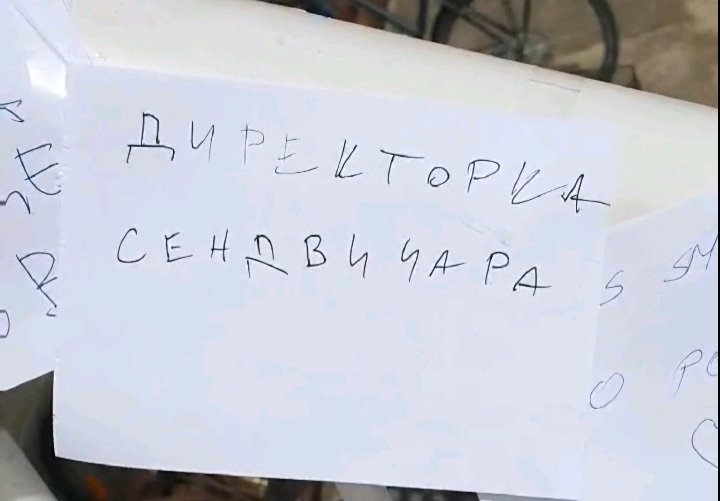 ДИРЕКТОРКА
СЕНДВИЧАРА